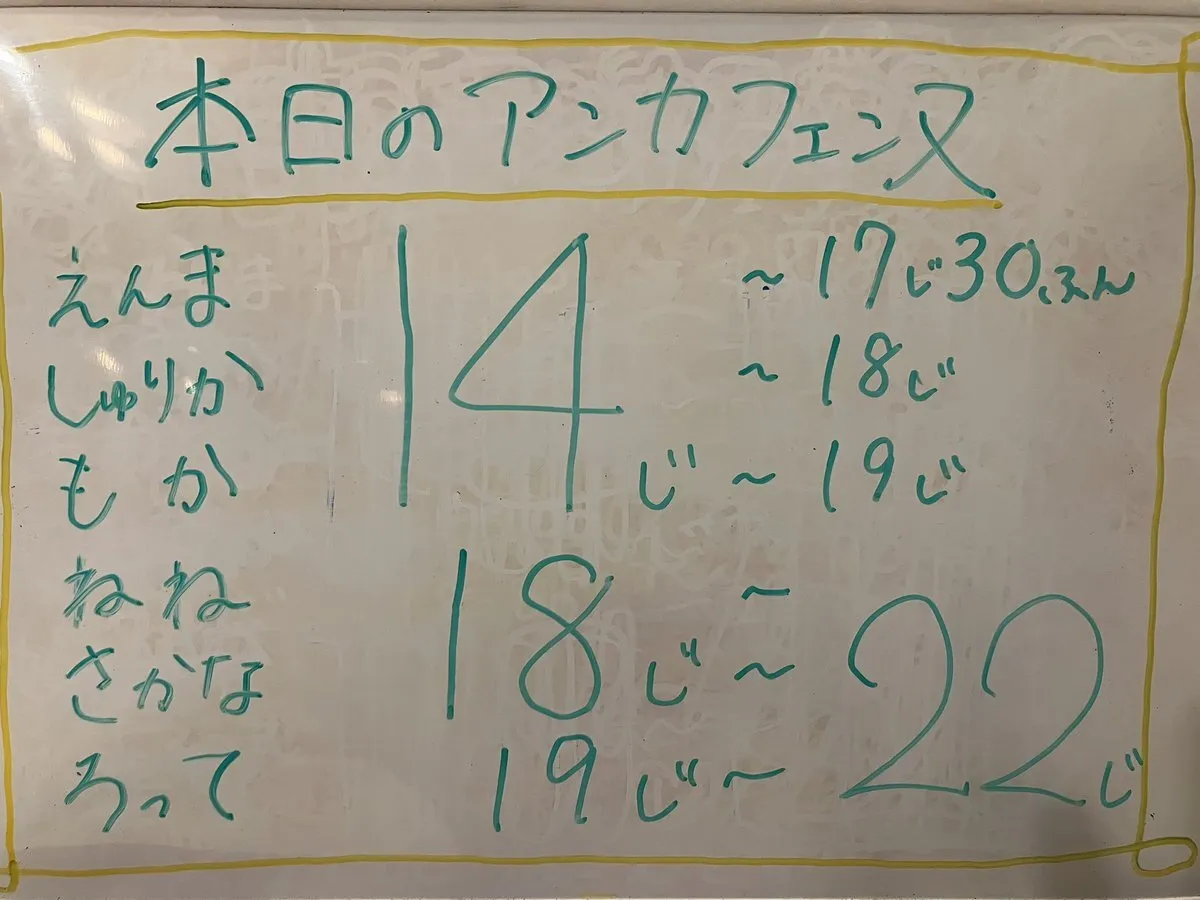 本日のアンカフェンヌ
えんま 14じ ～17じ30ふん
しゅりか ～18じ
もか ～19じ
ねね 18じ～ 22じ
さかな ～
ろって 19じ～